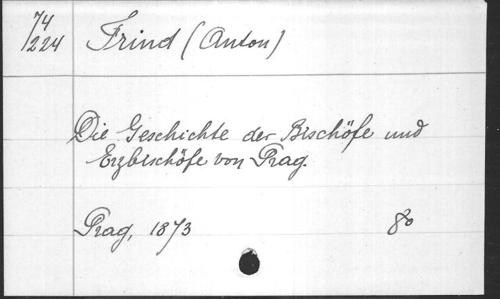 74
1224 Frind (Anton)
Die Geschichte der Bischöfe und
Erzbischöfe von Prag.
Prag, 1873 8o